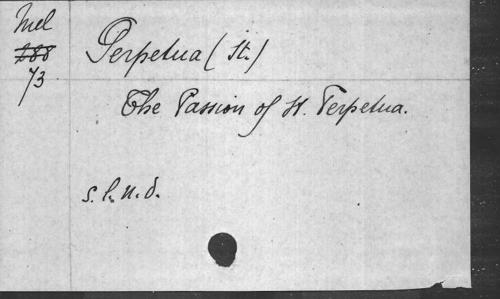 Mel
288
73
Perpetua (St.)
The Passion of St. Perpetua.
s.l.n.d.